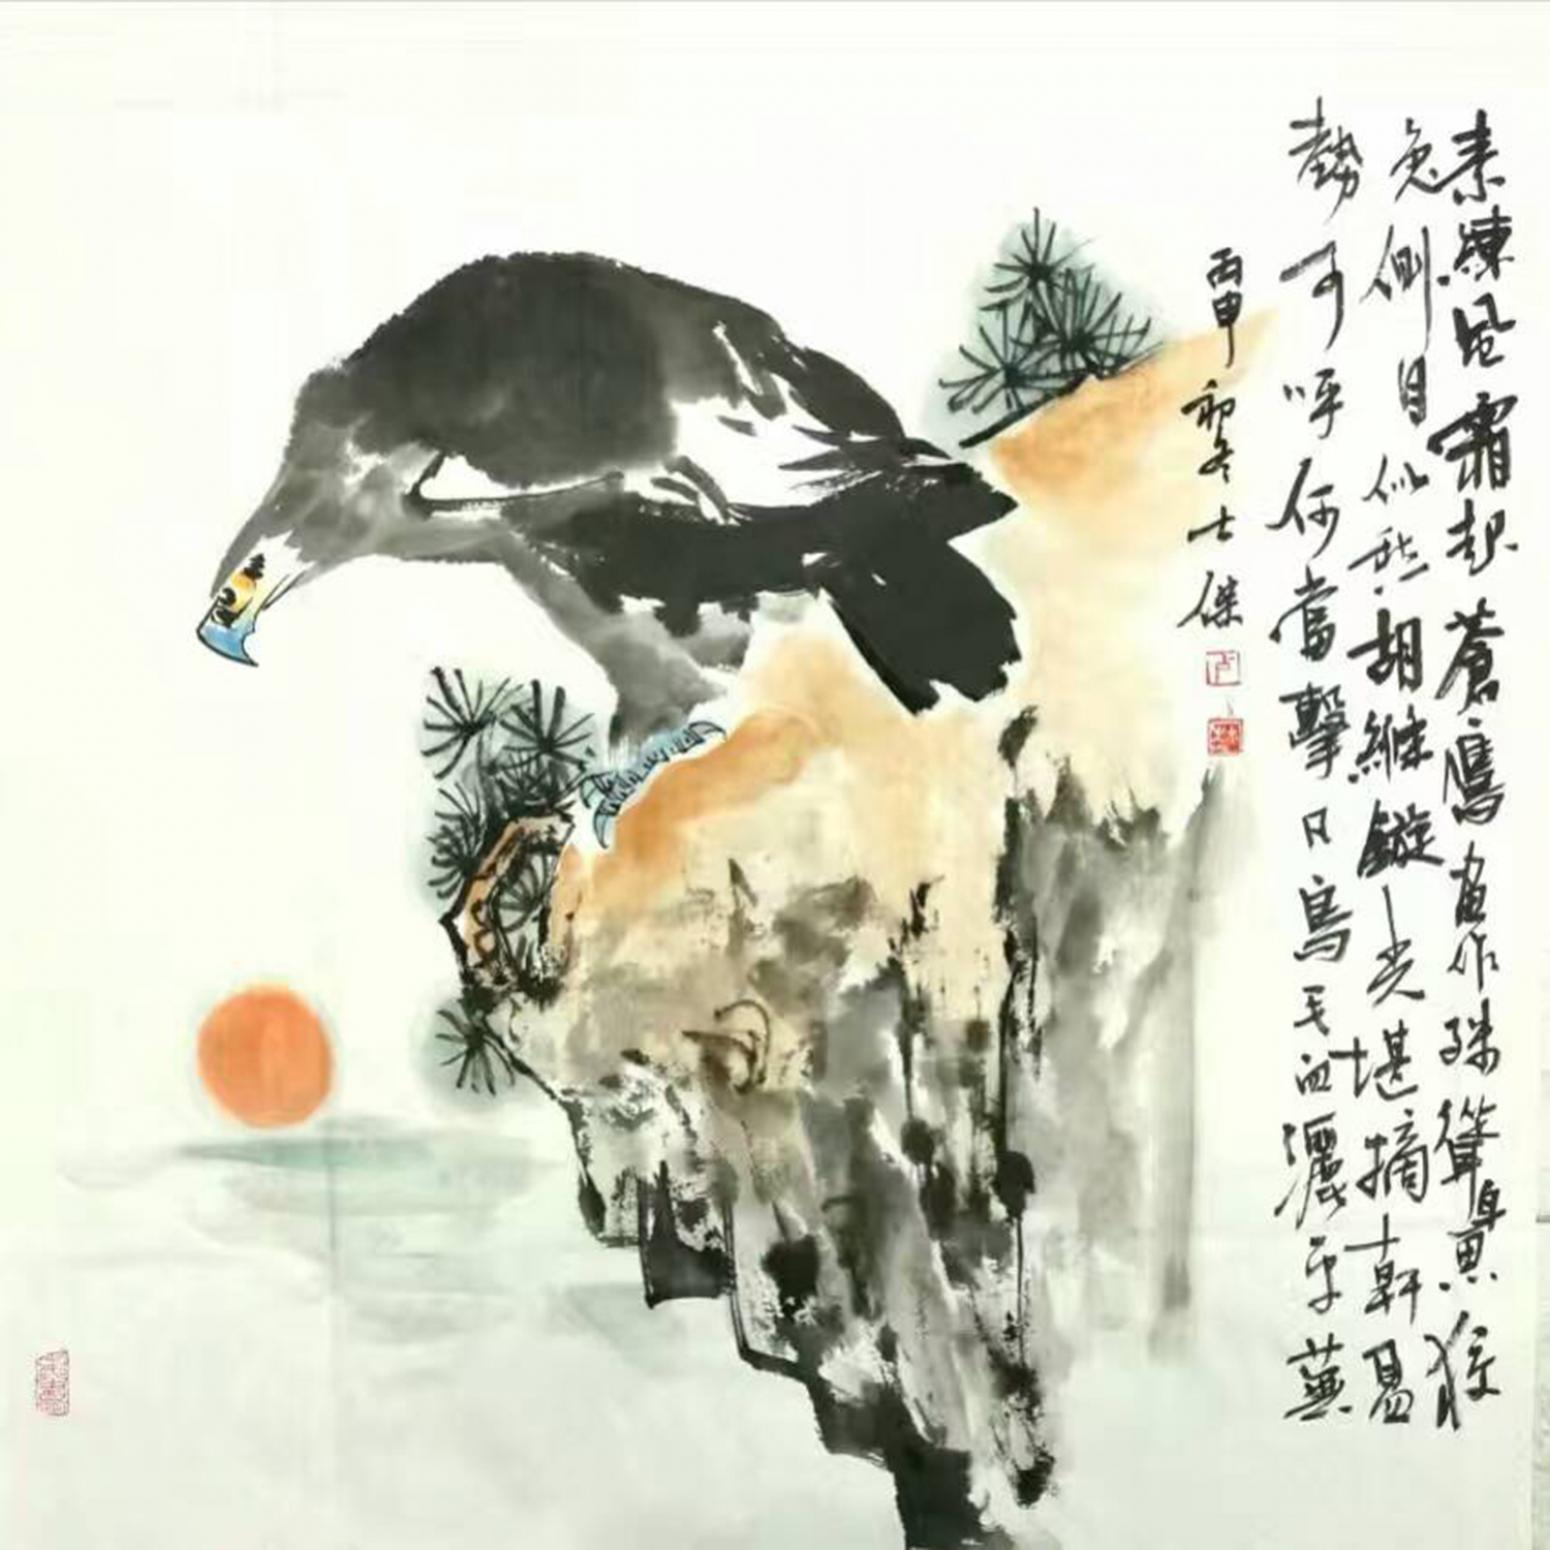 素練風霜起蒼鷹畫作殊㩳身思狡
兔側目似愁胡絛鏇光堪摘軒楹
勢可呼何當擊凡鳥毛血灑平蕪
丙申初冬士傑